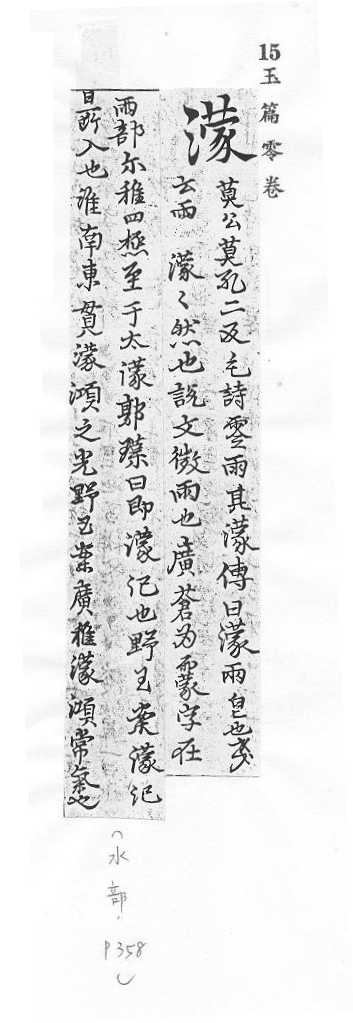 15玉篇零卷
濛 莫公莫孔二反毛詩零雨其濛傳曰濛雨皃也戔
云雨濛〻然也說文微雨也廣蒼为䨦字在
雨部尔雅四極至于太濛郭璞曰即濛汜也野王案濛汜
旦所入也淮南東貫濛澒之光野王案廣雅濛澒常氣也
(水部.
P358)